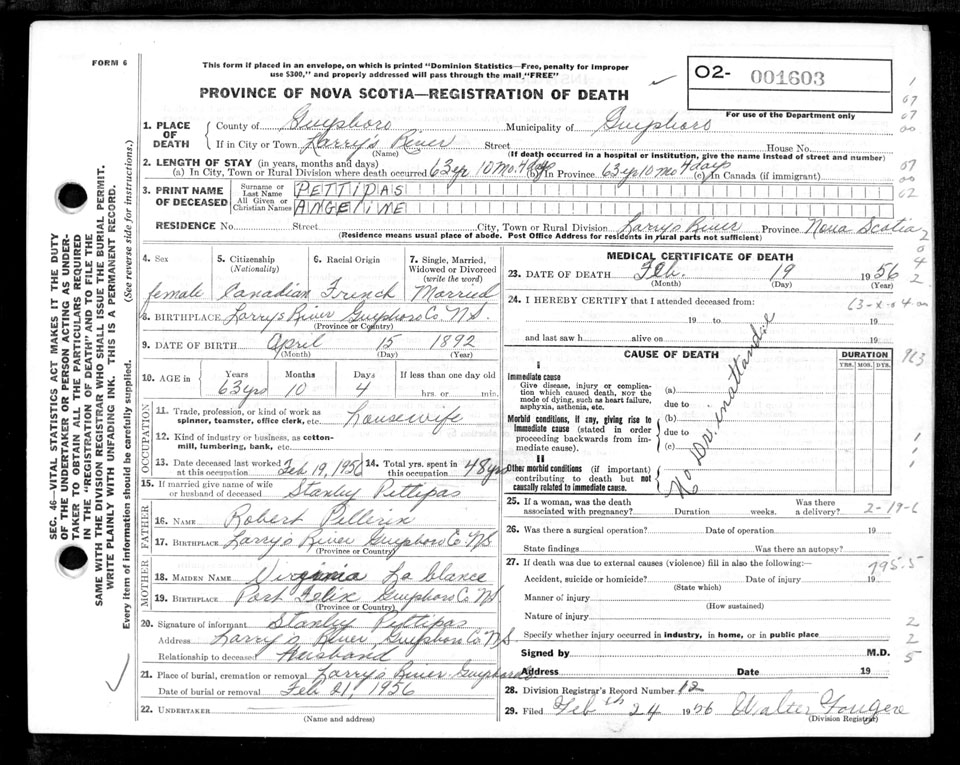 FORM 6
This form if placed in an envelope, on which is printed "Dominion Statistics—Free, penalty for improper
use $300," and properly addressed will pass through the mail "FREE"
PROVINCE OF NOVA SCOTIA—REGISTRATION OF DEATH
O2- 001603
For use of the Department only
1. PLACE OF DEATH
County of Guysboro Municipality of Guysboro
If in City or Town Larry's River Street House No.
(Name) (If death occurred in a hospital or institution, give the name instead of street and number)
2. LENGTH OF STAY (in years, months and days)
(a) In City, Town or Rural Division where death occurred 63 yr 10 Mo. 4 days (b) In Province 63 yr 10 mo 4 days (c) In Canada (if immigrant)
3. PRINT NAME OF DECEASED
Surname or Last Name PETTIPAS
All Given or Christian Names ANGELINE
RESIDENCE No. Street City, Town or Rural Division Larry's River Province Nova Scotia
(Residence means usual place of abode. Post Office Address for residents in rural parts not sufficient)
4. Sex 5. Citizenship (Nationality) 6. Racial Origin 7. Single, Married, Widowed or Divorced (write the word)
female Canadian French Married
8. BIRTHPLACE Larry's River Guysboro Co. N.S.
(Province or Country)
9. DATE OF BIRTH April 15 1892
(Month) (Day) (Year)
10. AGE in Years Months Days If less than one day old
63 yrs 10 4 hrs. or min.
OCCUPATION
11. Trade, profession, or kind of work as spinner, teamster, office clerk, etc. housewife
12. Kind of industry or business, as cotton-mill, lumbering, bank, etc.
13. Date deceased last worked at this occupation Feb 19, 1956 14. Total yrs. spent in this occupation 48 yrs
15. If married give name of wife or husband of deceased Stanley Pettipas
FATHER
16. NAME Robert Pellerin
17. BIRTHPLACE Larry's River Guysboro Co. N.S.
(Province or Country)
MOTHER
18. MAIDEN NAME Virginia La blance
19. BIRTHPLACE Port Felix Guysboro Co NS
(Province or Country)
20. Signature of informant Stanley Pettipas
Address Larry's River Guysboro Co. N.S
Relationship to deceased Husband
21. Place of burial, cremation or removal Larry's River Guysboro
Date of burial or removal Feb 21, 1956
22. UNDERTAKER
(Name and address)
MEDICAL CERTIFICATE OF DEATH
23. DATE OF DEATH Feb. 19 1956
(Month) (Day) (Year)
24. I HEREBY CERTIFY that I attended deceased from:
19 to 19
and last saw h alive on 19
CAUSE OF DEATH DURATION
YRS. MOS. DYS.
I
Immediate cause
Give disease, injury or complication which caused death, NOT the mode of dying, such as heart failure, asphyxia, asthenia, etc.
(a)
due to
Morbid conditions, if any, giving rise to immediate cause (stated in order proceeding backwards from immediate cause).
(b)
due to
(c)
II
Other morbid conditions (if important) contributing to death but not causally related to immediate cause.
No Dr. in attandance
25. If a woman, was the death associated with pregnancy? Duration weeks. Was there a delivery?
2-19-6
26. Was there a surgical operation? Date of operation 19
State findings Was there an autopsy?
27. If death was due to external causes (violence) fill in also the following:—
795.5
Accident, suicide or homicide? Date of injury 19
(State which)
Manner of injury
(How sustained)
Nature of injury
Specify whether injury occurred in industry, in home, or in public place
Signed by M.D.
Address Date 19
28. Division Registrar's Record Number 12
29. Filed Feb th 24 1956 Walter Fougere
(Division Registrar)
SEC. 46—VITAL STATISTICS ACT MAKES IT THE DUTY
OF THE UNDERTAKER OR PERSON ACTING AS UNDER-
TAKER TO OBTAIN ALL THE PARTICULARS REQUIRED
IN THE "REGISTRATION OF DEATH" AND TO FILE THE
SAME WITH THE DIVISION REGISTRAR WHO SHALL ISSUE THE BURIAL PERMIT.
WRITE PLAINLY WITH UNFADING INK. THIS IS A PERMANENT RECORD.
Every item of information should be carefully supplied. (See reverse side for instructions.)